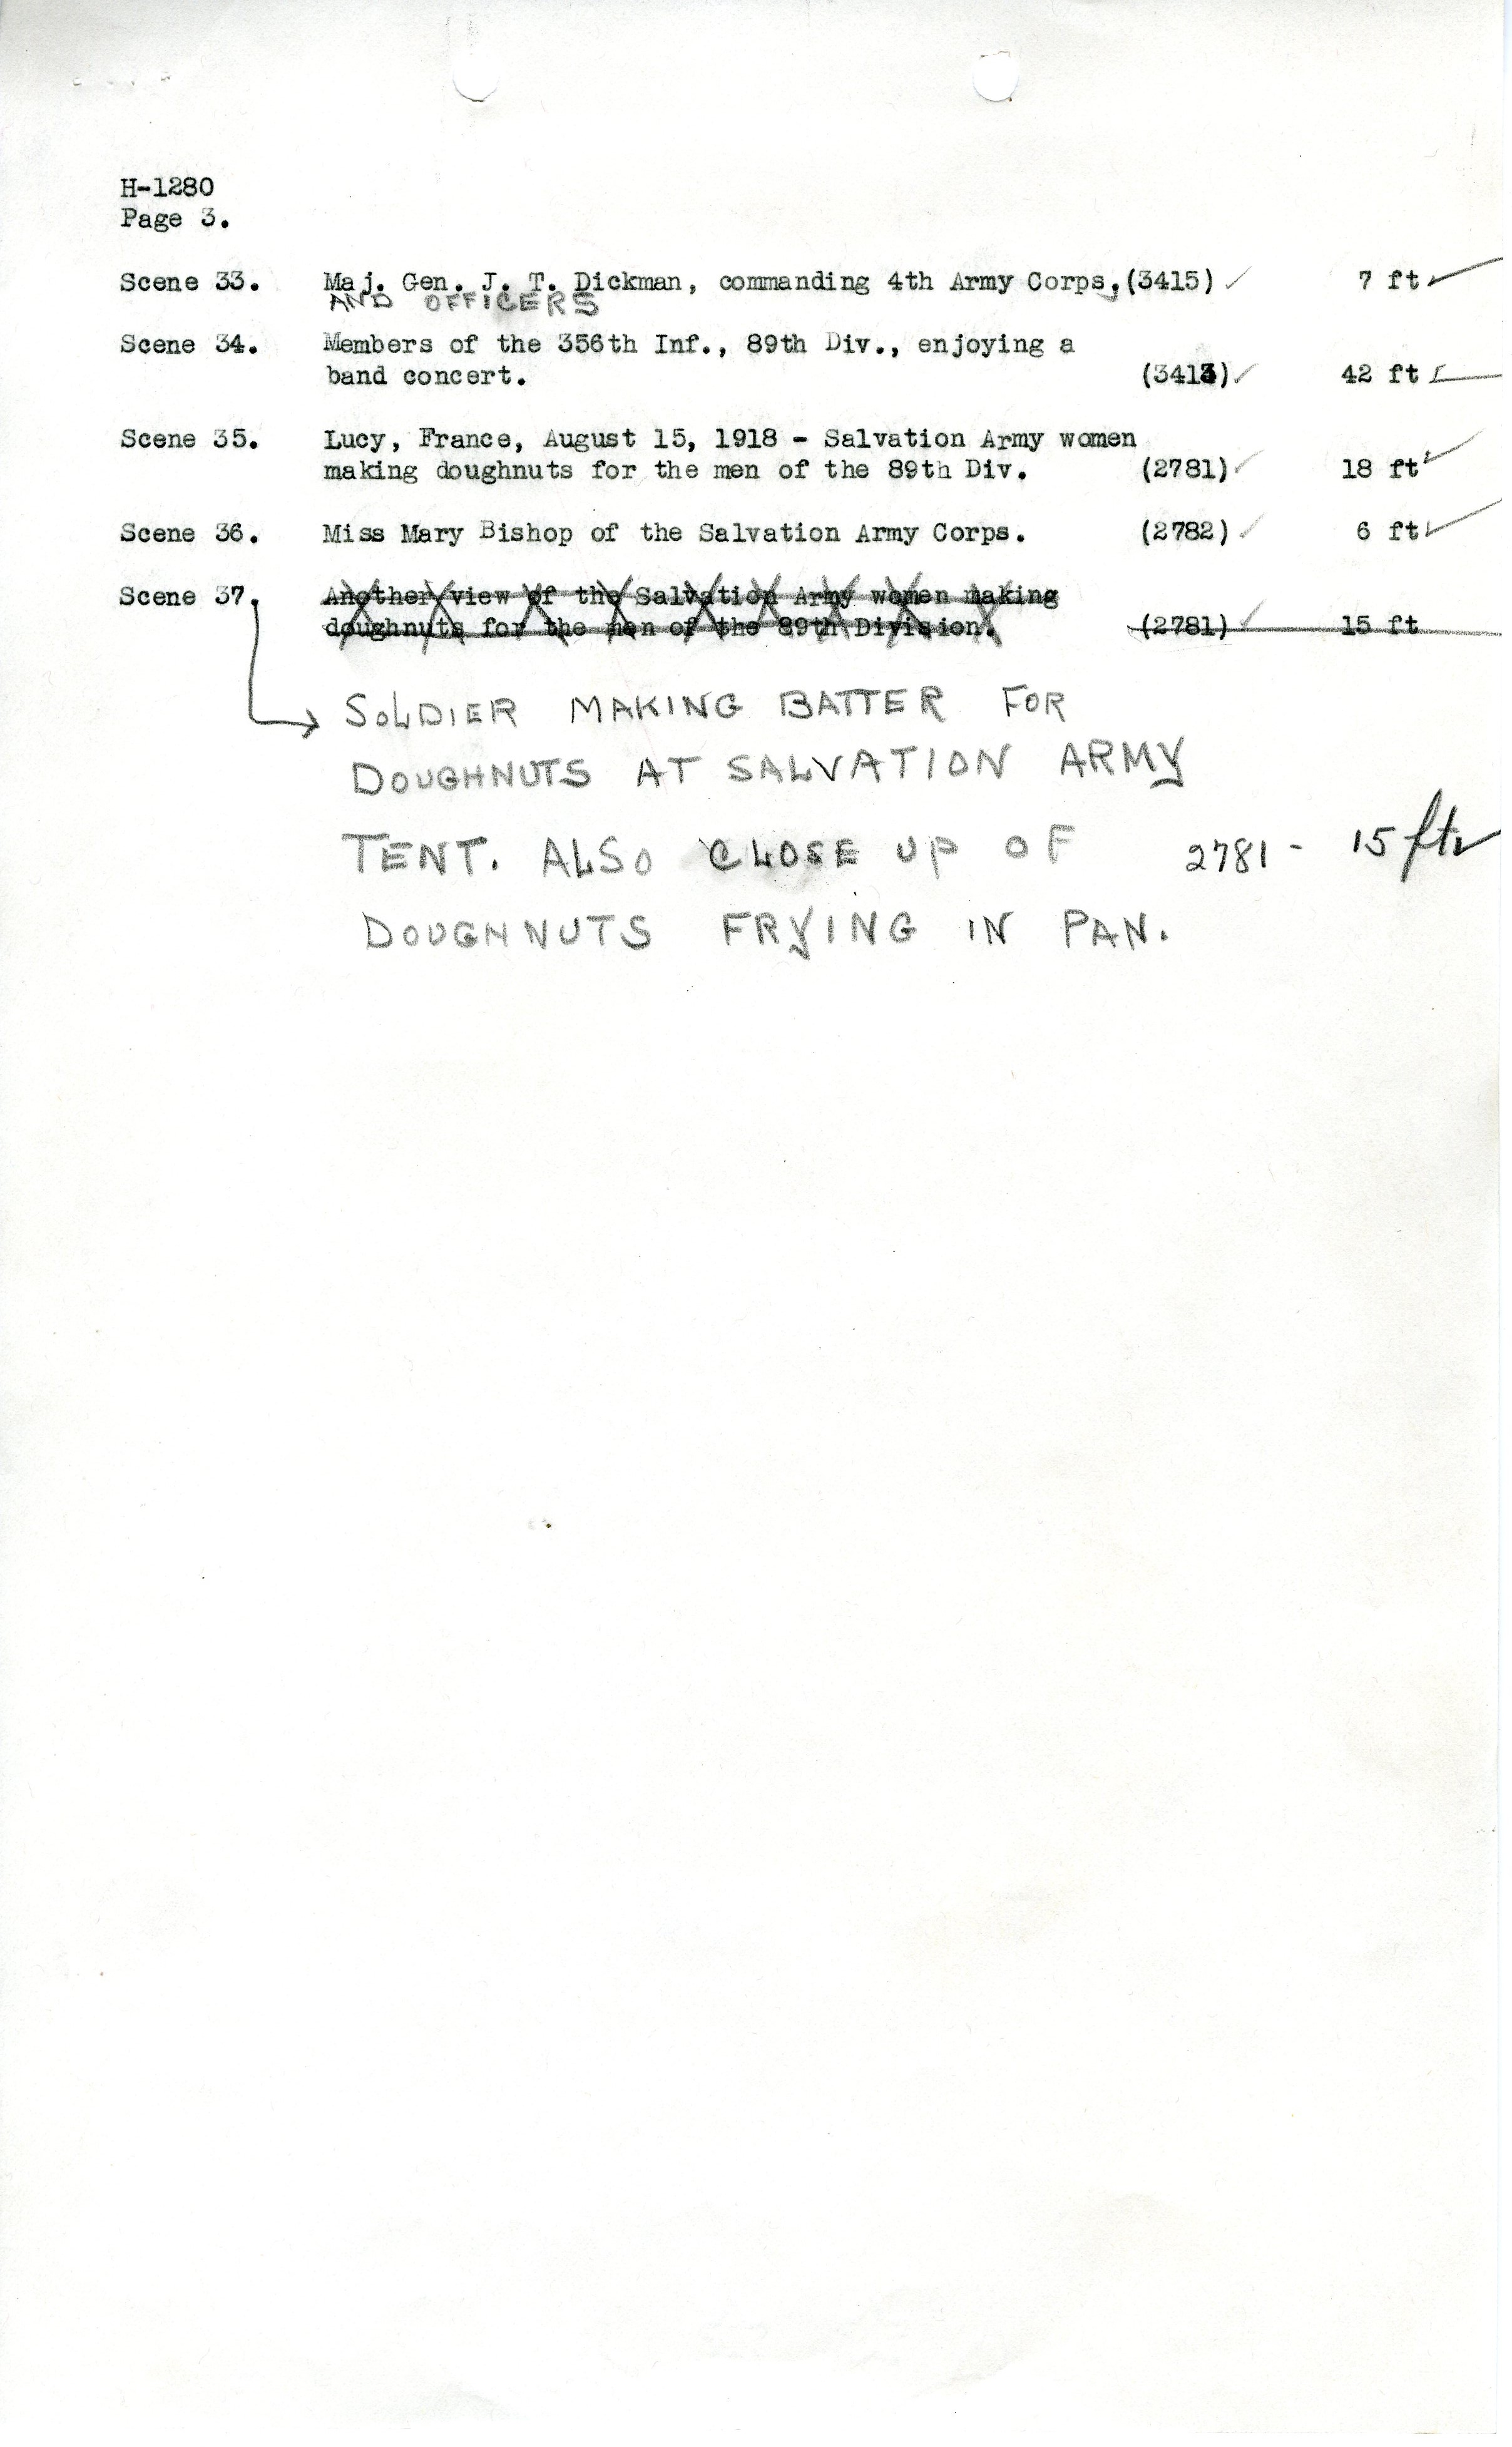 H-1280
Page 3.
Scene 33. Maj. Gen. J. T. Dickman, commanding 4th Army Corps, (3415) ✓ 7 ft ✓
AND OFFICERS
Scene 34. Members of the 356th Inf., 89th Div., enjoying a
band concert. (3413) ✓ 42 ft ✓
Scene 35. Lucy, France, August 15, 1918 - Salvation Army women
making doughnuts for the men of the 89th Div. (2781) ✓ 18 ft ✓
Scene 36. Miss Mary Bishop of the Salvation Army Corps. (2782) ✓ 6 ft ✓
Scene 37. Another view of the Salvation Army women making
doughnuts for the men of the 89th Division. (2781) ✓ 15 ft
SOLDIER MAKING BATTER FOR
DOUGHNUTS AT SALVATION ARMY
TENT. ALSO CLOSE UP OF 2781 - 15 ft ✓
DOUGHNUTS FRYING IN PAN.